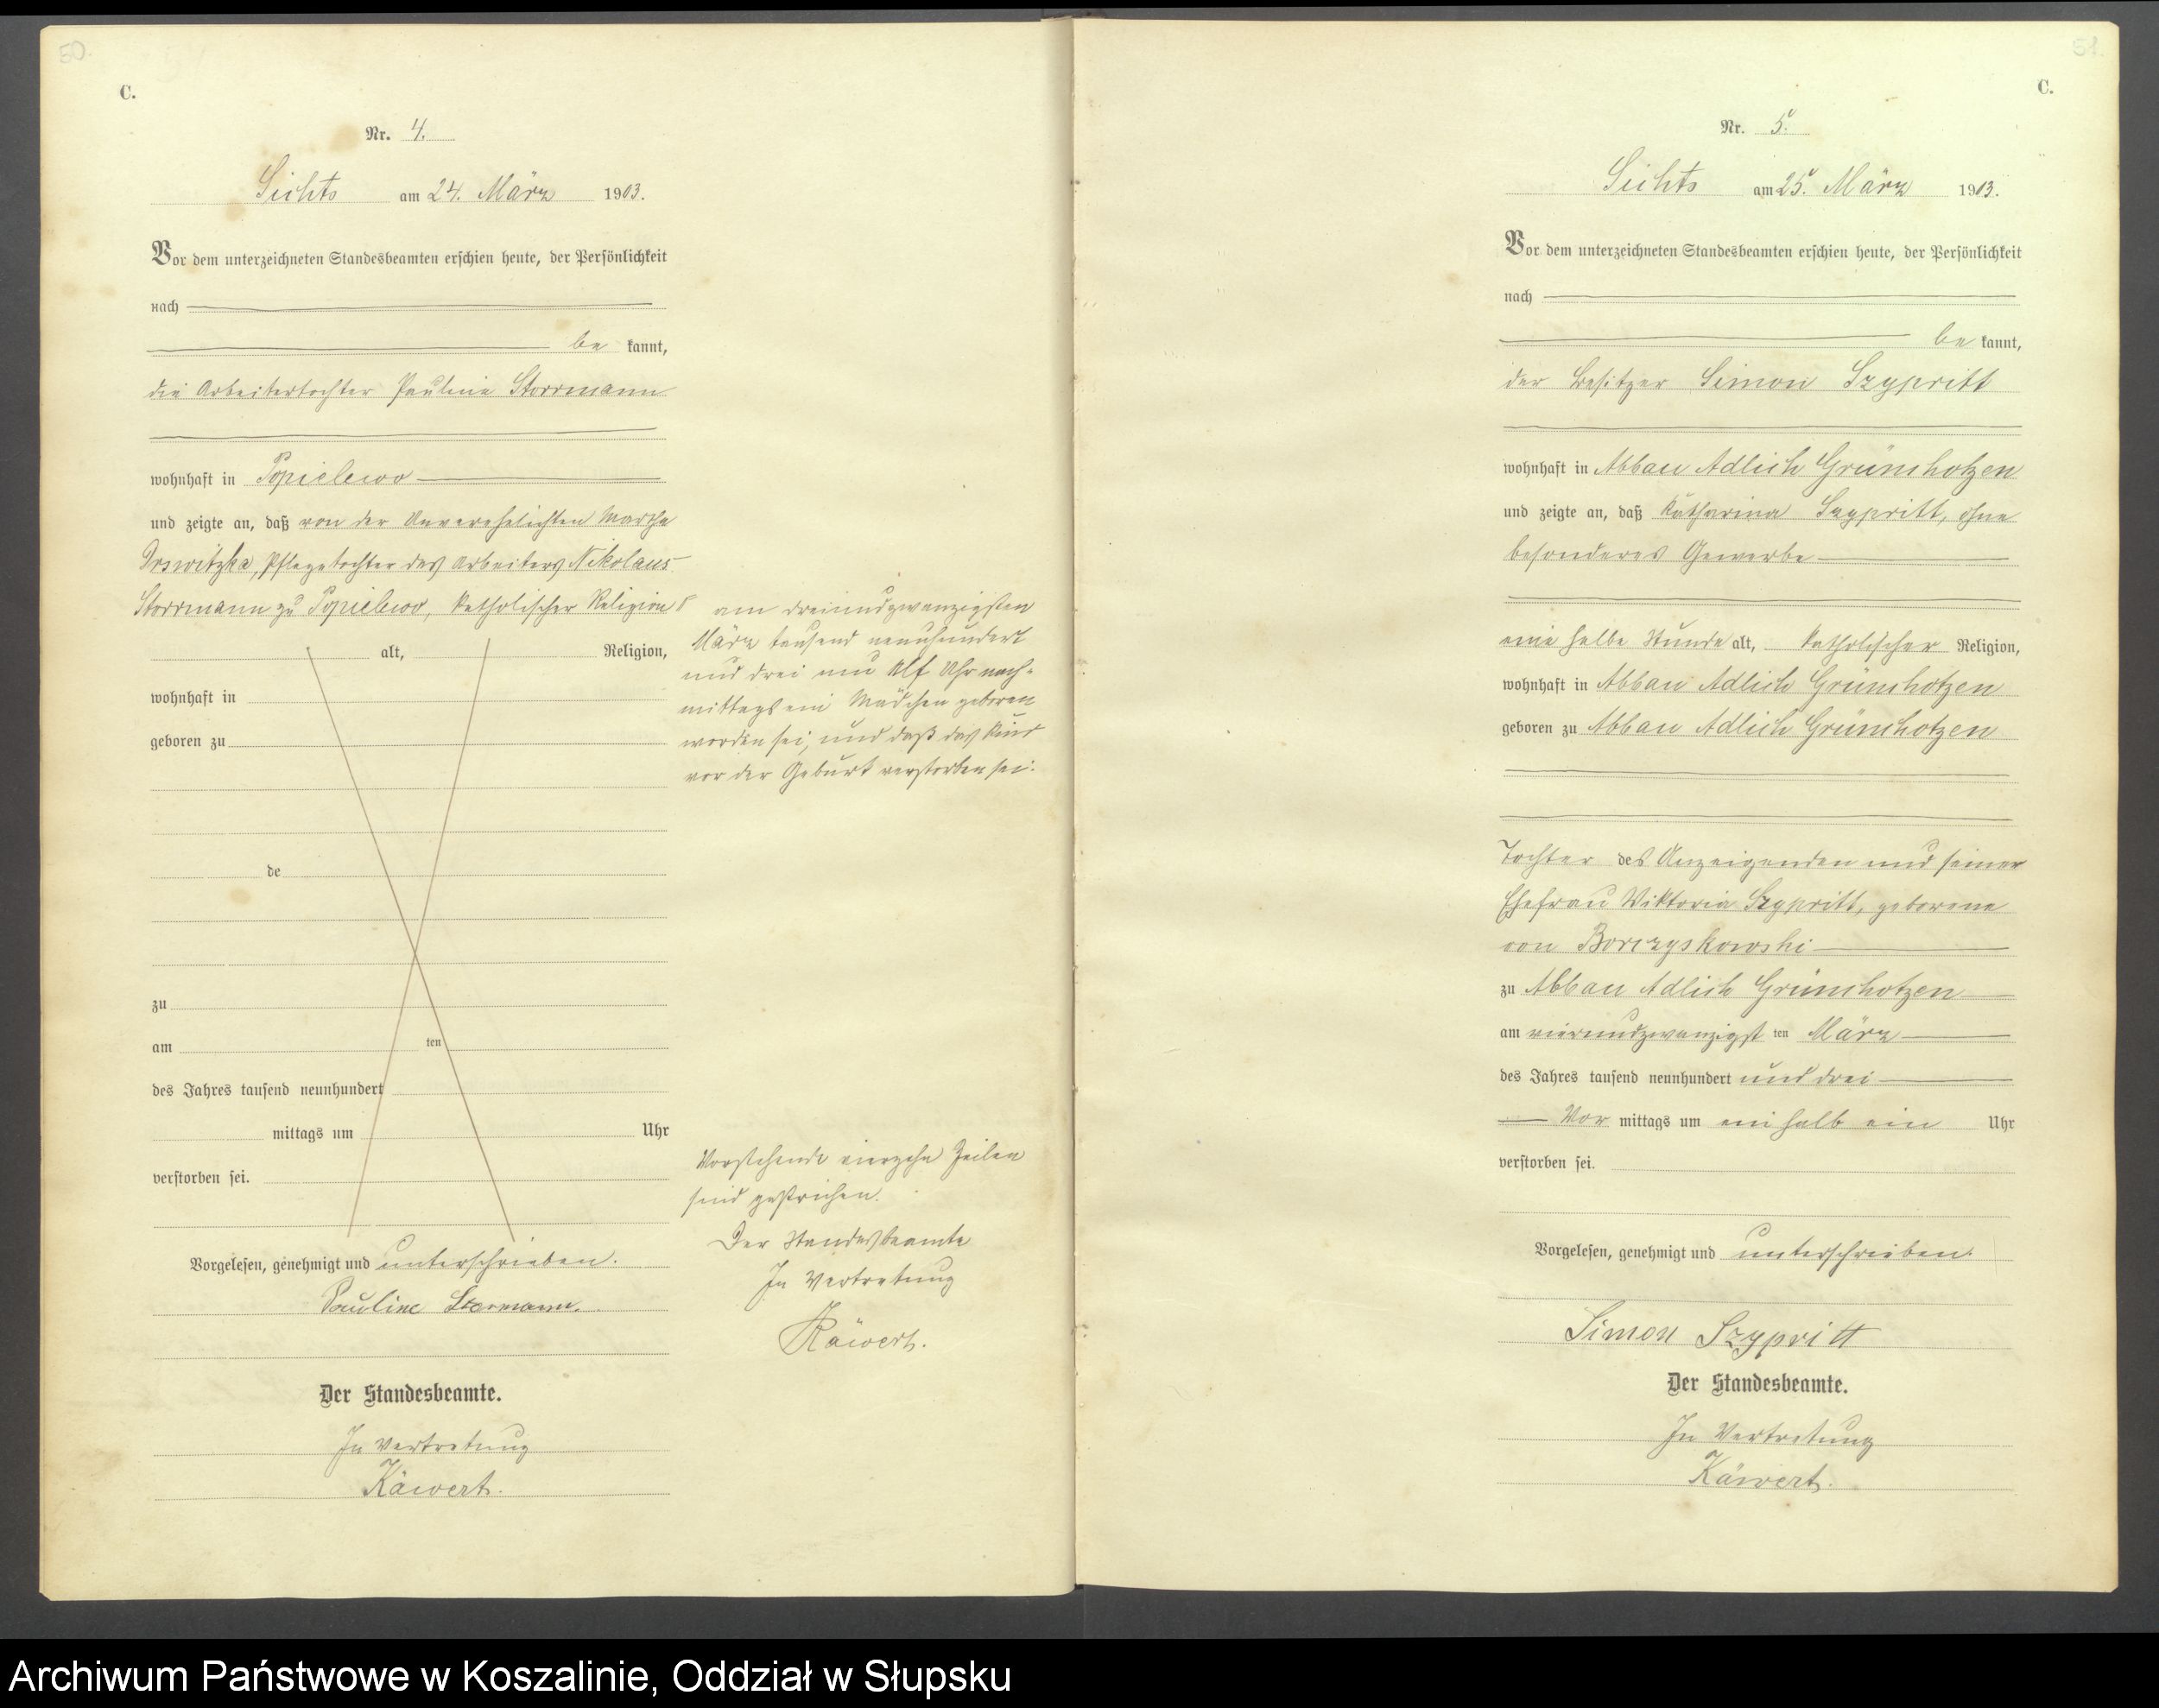 50.
C.
Nr. 4.
Sichts am 24. März 1903.
Vor dem unterzeichneten Standesbeamten erschien heute, der Persönlichkeit
nach
be kannt,
die Arbeitertochter Pauline Storrmann
wohnhaft in Popielewo
und zeigte an, daß von der Unverehelichten Martha
Pflegetochter des Arbeiters Nikolaus
Storrmann zu Popielewo, katholischer Religion
am dreiundzwanzigsten
März tausend neunhundert
und drei um elf Uhr nach-
mittags ein Mädchen geboren
worden sei, und daß das Kind
vor der Geburt verstorben sei.
alt, Religion,
wohnhaft in
geboren zu
de
zu
am ten
des Jahres tausend neunhundert
mittags um Uhr
verstorben sei.
Vorstehende vierzehn Zeilen
sind gestrichen.
Der Standesbeamte
In Vertretung
Käwert.
Vorgelesen, genehmigt und unterschrieben.
Pauline Stormann.
Der Standesbeamte.
In Vertretung
Käwert.
51.
C.
Nr. 5.
Sichts am 25. März 1903.
Vor dem unterzeichneten Standesbeamten erschien heute, der Persönlichkeit
nach
be kannt,
der Besitzer Simon Szypritt
wohnhaft in Abbau Adlich Grünchotzen
und zeigte an, daß Katharina Szypritt, ohne
besonderes Gewerbe
eine halbe Stunde alt, katholischer Religion,
wohnhaft in Abbau Adlich Grünchotzen
geboren zu Abbau Adlich Grünchotzen
Tochter des Anzeigenden und seiner
Ehefrau Viktoria Szypritt, geborene
von Borczyskowski
zu Abbau Adlich Grünchotzen
am vierundzwanzigst ten März
des Jahres tausend neunhundert und drei
Vor mittags um ein halb ein Uhr
verstorben sei.
Vorgelesen, genehmigt und unterschrieben.
Simon Szypritt
Der Standesbeamte.
In Vertretung
Käwert.
Archiwum Państwowe w Koszalinie, Oddział w Słupsku